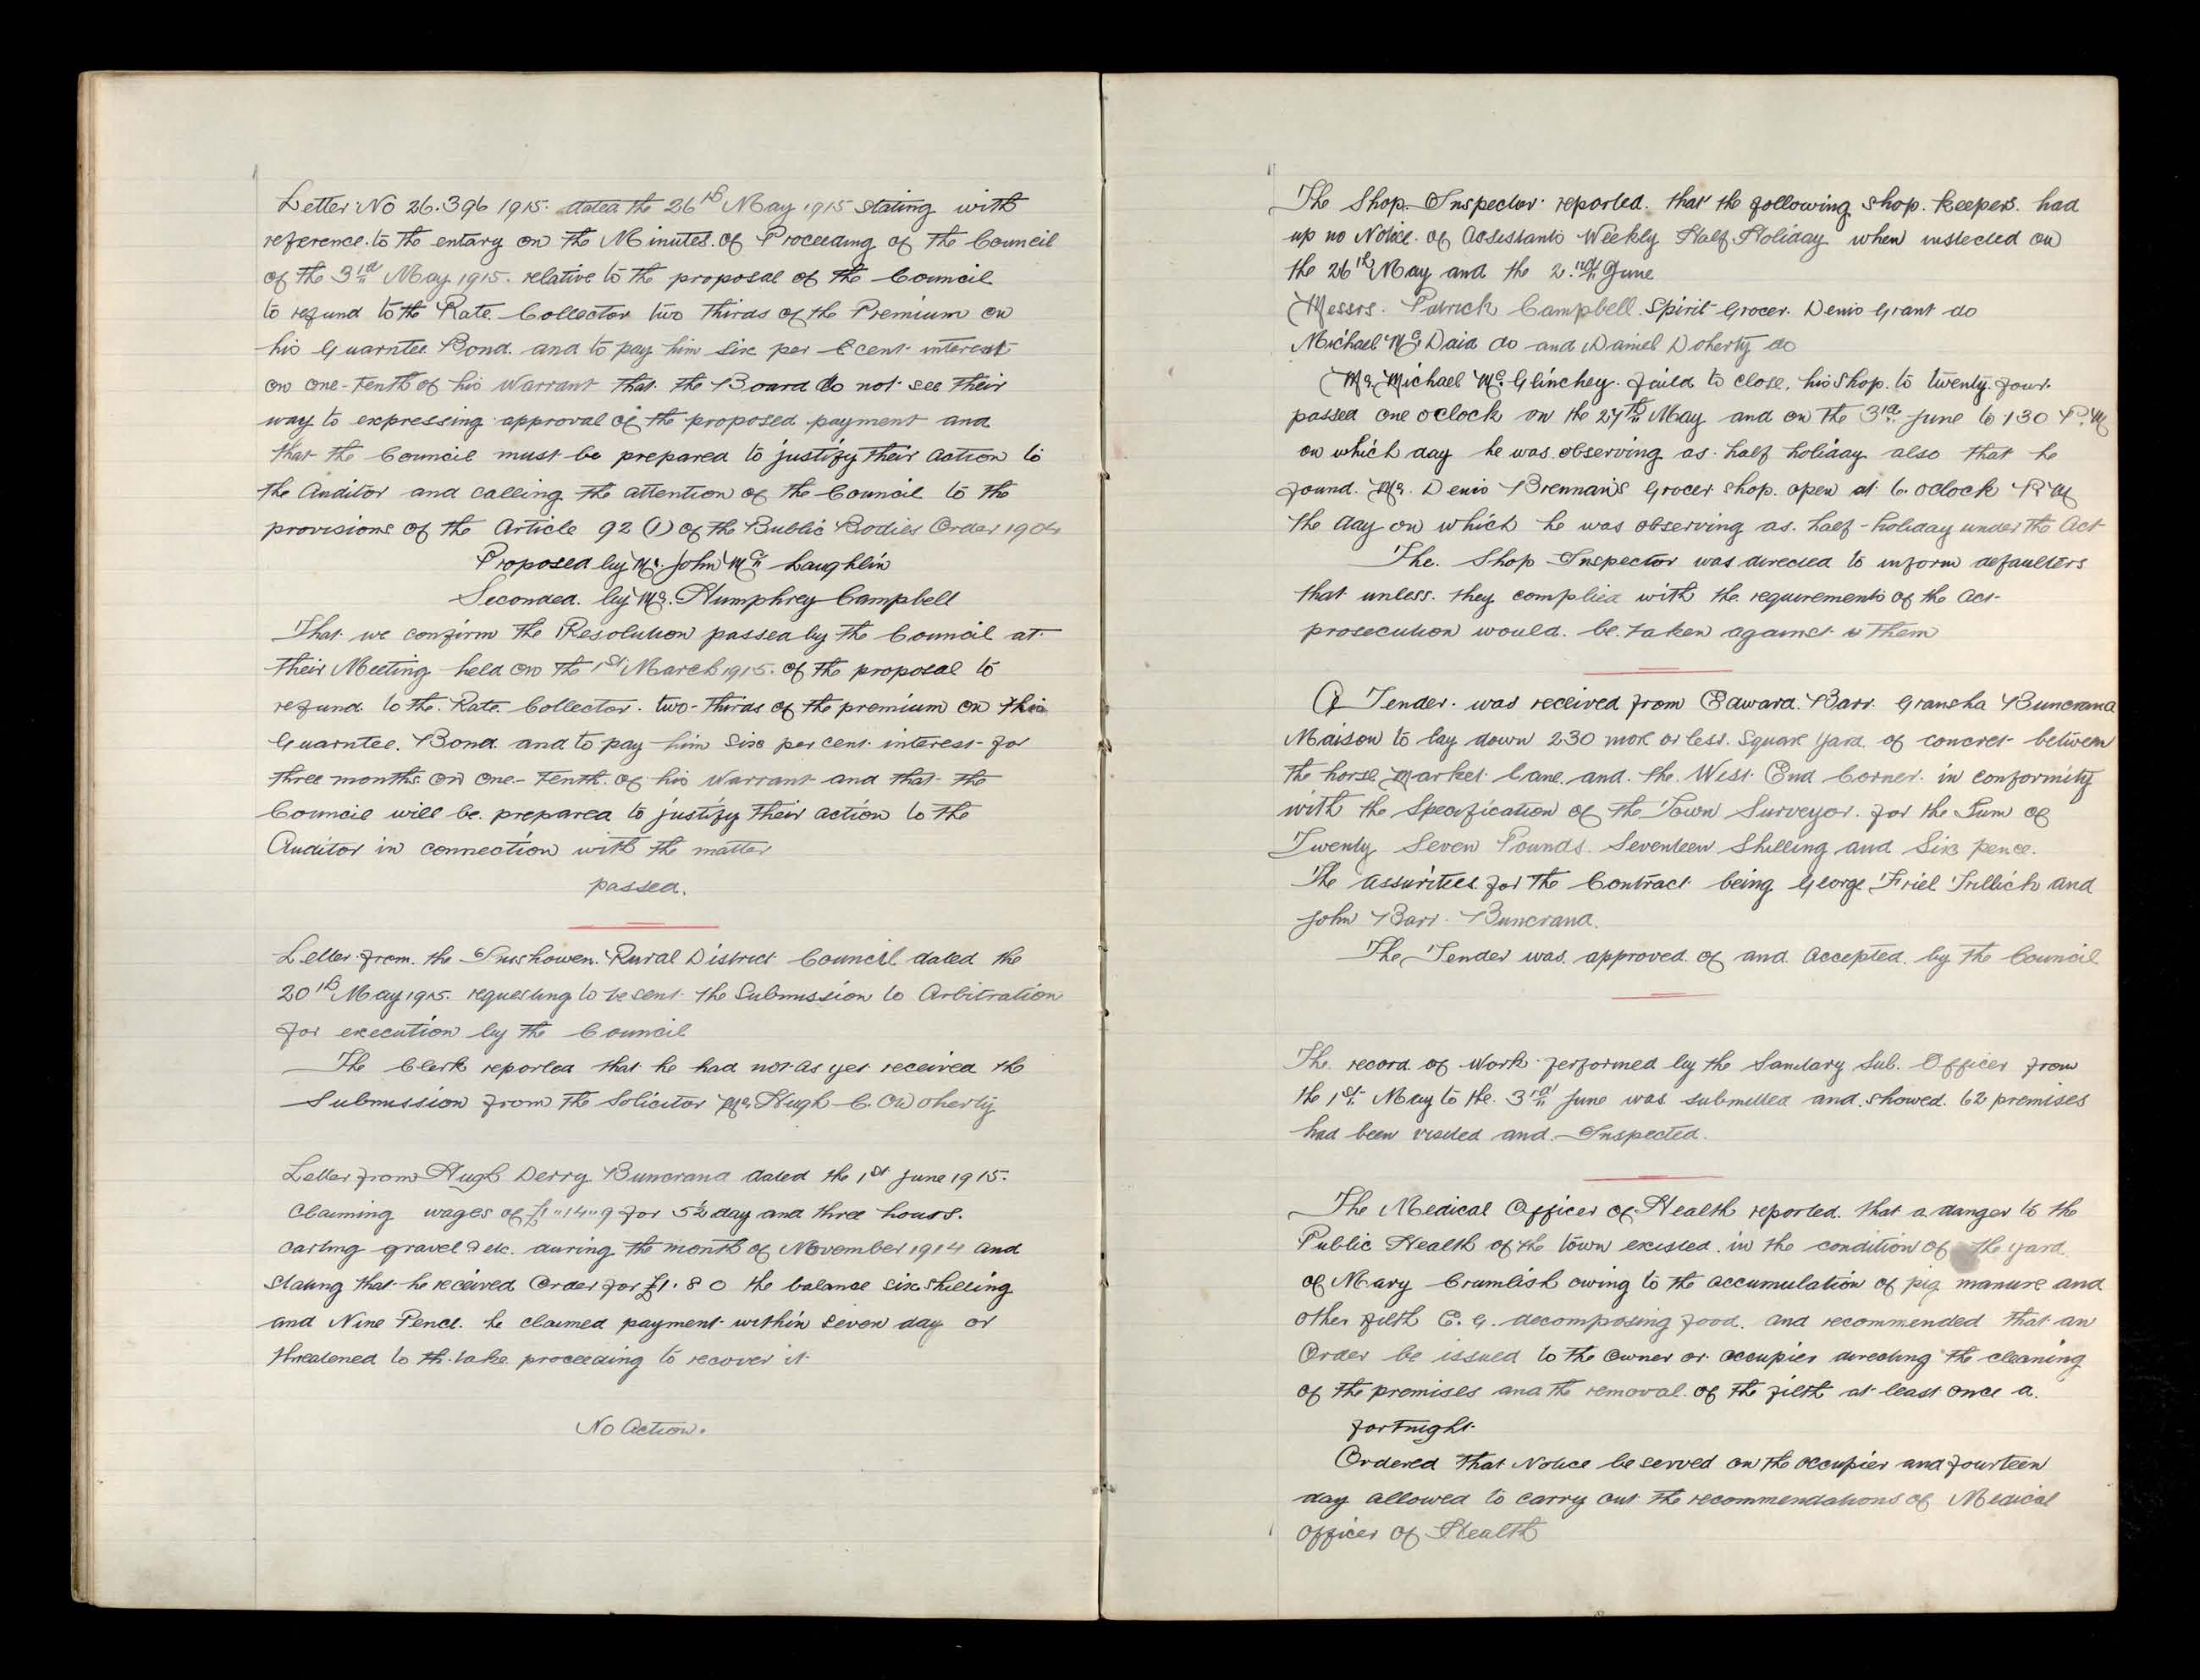 Letter No 26.396 1915. dated the 26th May 1915 stating with
reference to the entary on the Minutes of Proceeding of the Council
of the 3rd May 1915. relative to the proposal of the Council
to refund to the Rate Collector two thirds of the Premium on
his Guarntee Bond. and to pay him six per cent interest
on one-tenth of his Warrant that the Board do not see their
way to expressing approval of the proposed payment and
that the Council must be prepared to justify their action to
the Auditor and calling the attention of the Council to the
provisions of the Article 92 (1) of the Public Bodies Order 1904
Proposed by Mr. John Mc Laughlin
Seconded by Mr. Humphrey Campbell
That we confirm the Resolution passed by the Council at
their Meeting held on the 1st March 1915. of the proposal to
refund to the Rate Collector two-thirds of the premium on this
Guarntee Bond and to pay him six per cent interest for
three months on one-tenth of his Warrant and that the
Council will be prepared to justify their action to the
Auditor in connection with the matter
passed.
Letter from the Inishowen Rural District Council dated the
20th May 1915. requesting to be sent the Submission to Arbitration
for execution by the Council
The Clerk reported that he had not as yet received the
Submission from the Solicitor Mr Hugh C. O'Doherty
Letter from Hugh Derry Buncrana dated the 1st June 1915.
Claiming wages of £1"14"9 for 5½ day and three hours.
carting gravel & etc. during the month of November 1914 and
stating that he received Order for £1. 8 0 the balance six shilling
and Nine Pence. he claimed payment within seven day or
threatened to th. take proceeding to recover it
No Action.
The Shop Inspector reported that the following shop keepers had
up no Notice of Assistants Weekly Half Holiday when instected on
the 26th May and the 2.nd June
Messrs. Patrick Campbell Spirit Grocer. Denis Grant do
Michael McDaid do and Daniel Doherty do
Mr. Michael McGlinchey faild to close, his shop to twenty four
passed one oclock on the 27th May and on the 3rd June to 130 P.M
on which day he was observing as half holiday also that he
found Mr. Denis Brennan's grocer shop open at 6. oclock P.M
the day on which he was observing as half-holiday under the Act
The Shop Inspector was directed to inform defaulters
that unless they complied with the requirements of the Act
prosecution would be taken against them
A Tender was received from Edward Barr Gransha Buncrana
Maison to lay down 230 more or less Square yard of concret between
the horse Market Lane and the West End Corner in conformity
with the Specification of the Town Surveyor. for the Sum of
Twenty Seven Pounds Seventeen Shilling and Six pence.
The assuritees for the Contract being George Friel Trillich and
John Barr Buncrana.
The Tender was approved of and Accepted by the Council
The record of Work performed by the Sanitary Sub. Officer from
the 1st May to the 3rd June was submitted and showed 62 premises
had been visited and Inspected.
The Medical Officer of Health reported that a danger to the
Public Health of the town existed in the condition of the yard
of Mary Crumlish owing to the accumulation of pig manure and
other filth E. G. decomposing food. and recommended that an
Order be issued to the Owner or occupier directing the cleaning
of the premises and the removal of the filth at least once a
fortnight
Ordered that Notice be served on the occupier and fourteen
day allowed to carry out the recommendations of Medical
Officer of Health